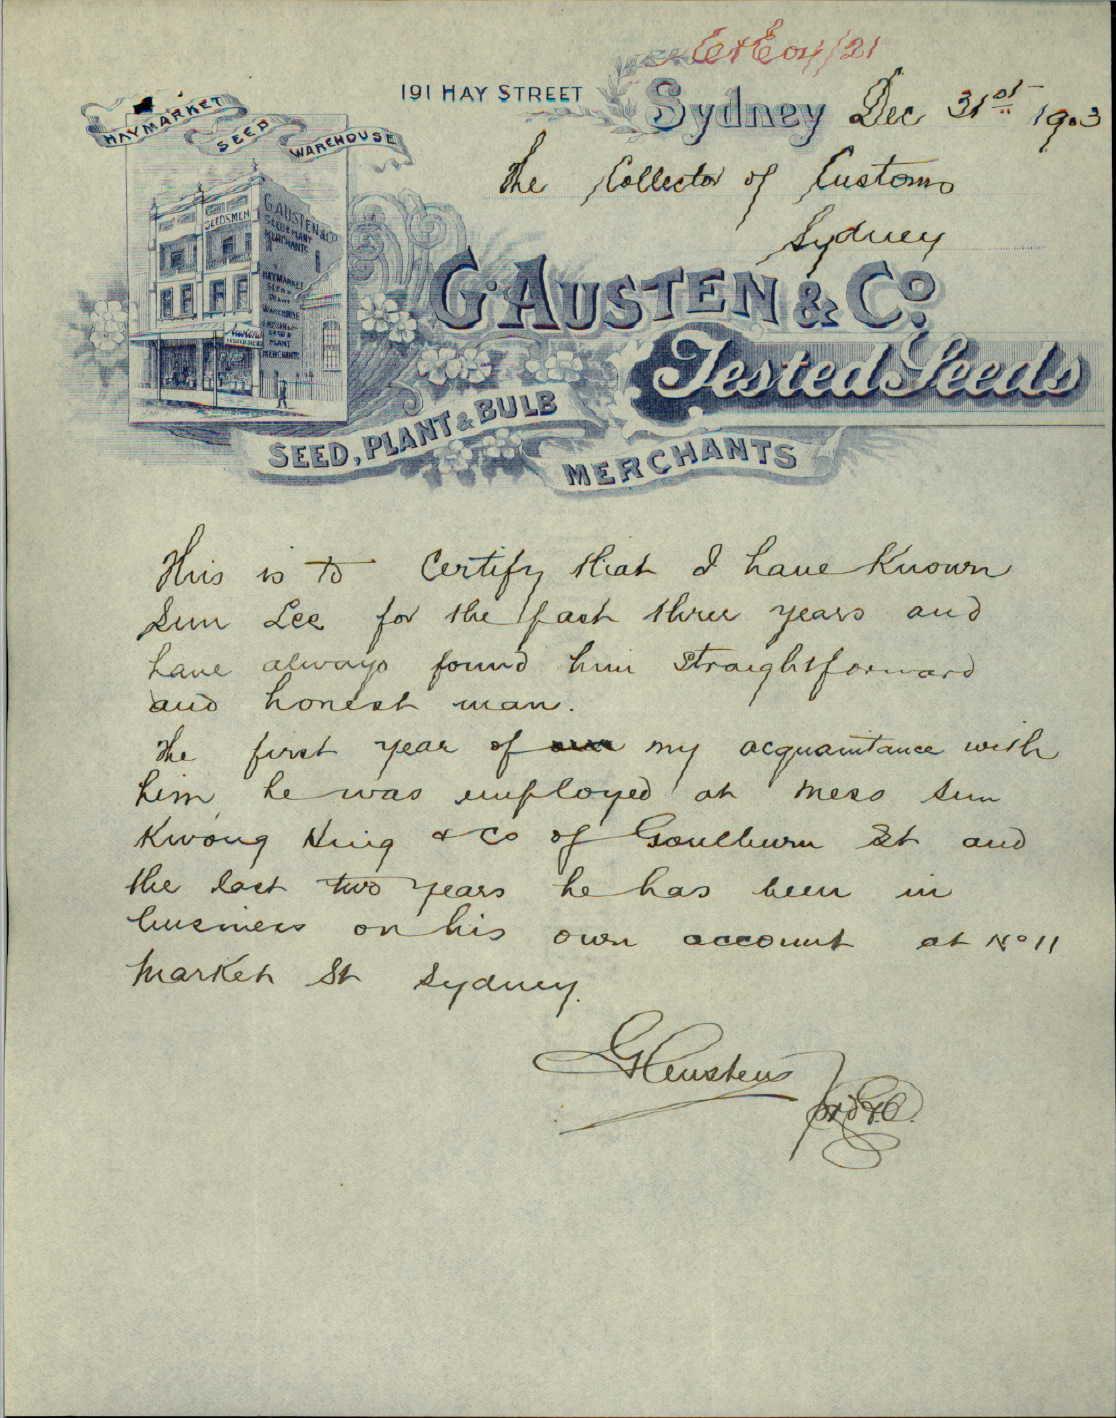 HAYMARKET SEED WAREHOUSE
191 HAY STREET
Sydney Dec 31st 1903
The Collector of Customs
Sydney
G. AUSTEN & Co.
SEEDSMEN
G. AUSTEN & Co
SEED & PLANT
MERCHANTS
HAYMARKET
SEED &
PLANT
WAREHOUSE
SEED &
PLANT
MERCHANTS
Tested Seeds
SEED, PLANT & BULB
MERCHANTS
This is to Certify that I have Known
Sun Lee for the past three years and
have always found him straightforward
and honest man.
The first year of my acquaintance with
him he was employed at Mess Sun
Kwong Hing & Co of Goulburn St and
the last two years he has been in
business on his own account at No 11
Market St Sydney.
G Austen